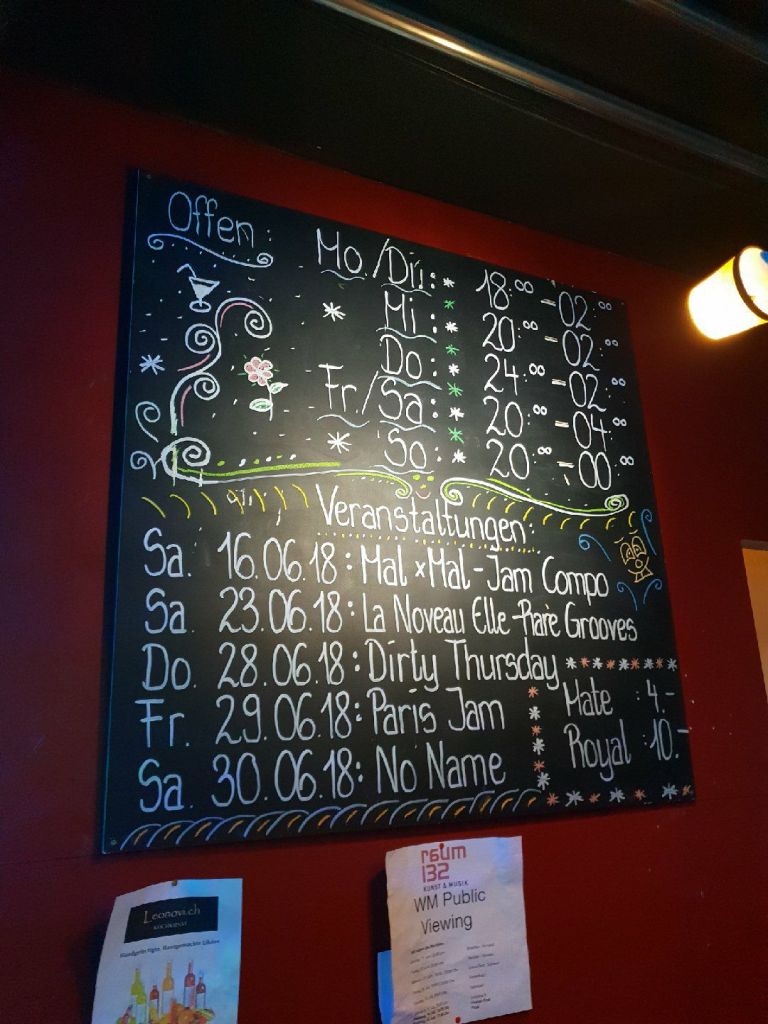 Offen:
Mo./Di.: 18.00 - 02.00
Mi.: 20.00 - 02.00
Do.: 24.00 - 02.00
Fr./Sa.: 20.00 - 04.00
So.: 20.00 - 00.00
Veranstaltungen:
Sa. 16.06.18: Mal x Mal - Jam Compo
Sa. 23.06.18: La Noveau Elle - Rare Grooves
Do. 28.06.18: Dirty Thursday
Fr. 29.06.18: Paris Jam
Sa. 30.06.18: No Name
Mate : 4.-
Royal : 10.-
Leonovi.ch
raum
132
KUNST & MUSIK
WM Public
Viewing